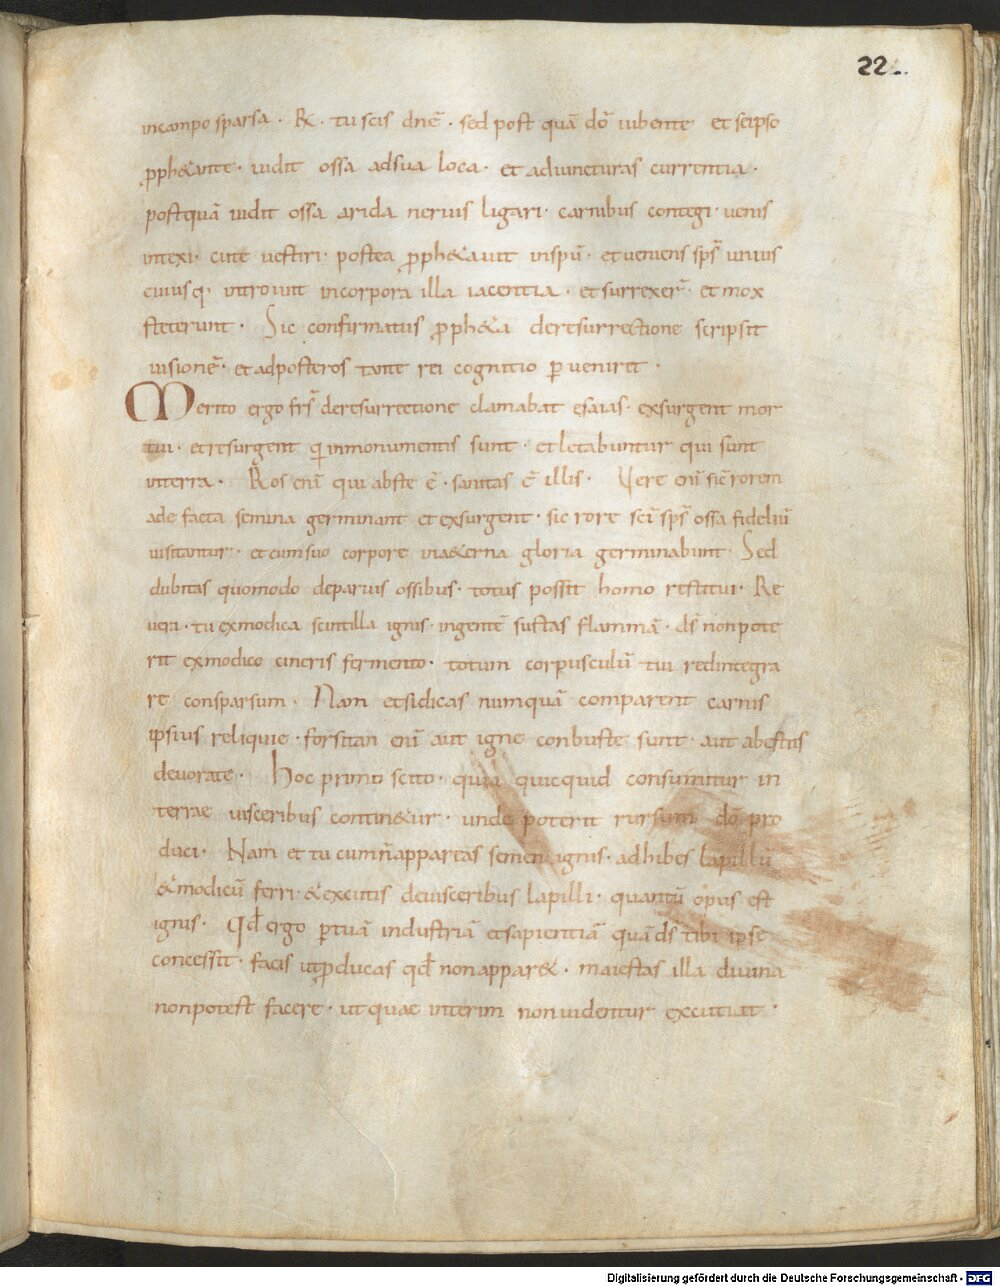 22
incampo sparsa · R̄x · tu scis dn̄e · sed post quā dō iubente et seipso
ꝓph&ante · uidit ossa adsua loca · et adiuncturas currentia ·
postquā uidit ossa arida neruis ligari · carnibus contegi · uenis
intexi · cute uestiri · postea ꝓph&auit inspū · et ueniens sps̄ unius
cuiusq · introiuit incorpora illa iacentia · et surrexer̄ · et mox
steterunt · Sic confirmatus ꝓph&a deresurrectione scripsit
uisionē · et adposteros tante rei cognitio ꝑueniret ·
Merito ergo frs̄ deresurrectione clamabat esaias · exsurgent mor
tui · et resurgent qi inmonumentis sunt · et letabuntur qui sunt
interra · Ros enī qui abste ē · sanitas ē illis · Vere enī sic̄ rorem
ade facta semina germinant et exsurgent · sic rore scī sps̄ ossa fideliū
uisitantur · et cum suo corpore uita&erna gloria germinabunt · Sed
dubitas quomodo deparuis ossibus · totus possit homo restitui · Re
uera · tu exmodica scintilla ignis · ingentē suscitas flammā · ds̄ non pote
rit exmodico cineris fermento · totum corpusculū tui redintegra
re consparsum · Nam et si dicas numquā comparent carnis
ipsius reliquie · forsitan enī aut igne conbuste sunt · aut abestiis
deuorate · Hoc primo scito · quia quicquid consumitur in
terrae uisceribus contin&ur · unde poterit rursum dō pro
duci · Nam et tu cumn̄appareas semen ignis · adhibes lapillū
& modicū ferri · & excutis deuisceribus lapilli · quantū opus est
ignis · Qd̄ ergo ꝑtuā industriā et sapientiā quā ds̄ tibi ipse
concessit · facis utꝓducas qd̄ non appar& · maiestas illa diuina
non potest facere · ut quae interim non uidentur excutiat ·
Digitalisierung gefördert durch die Deutsche Forschungsgemeinschaft - DFG